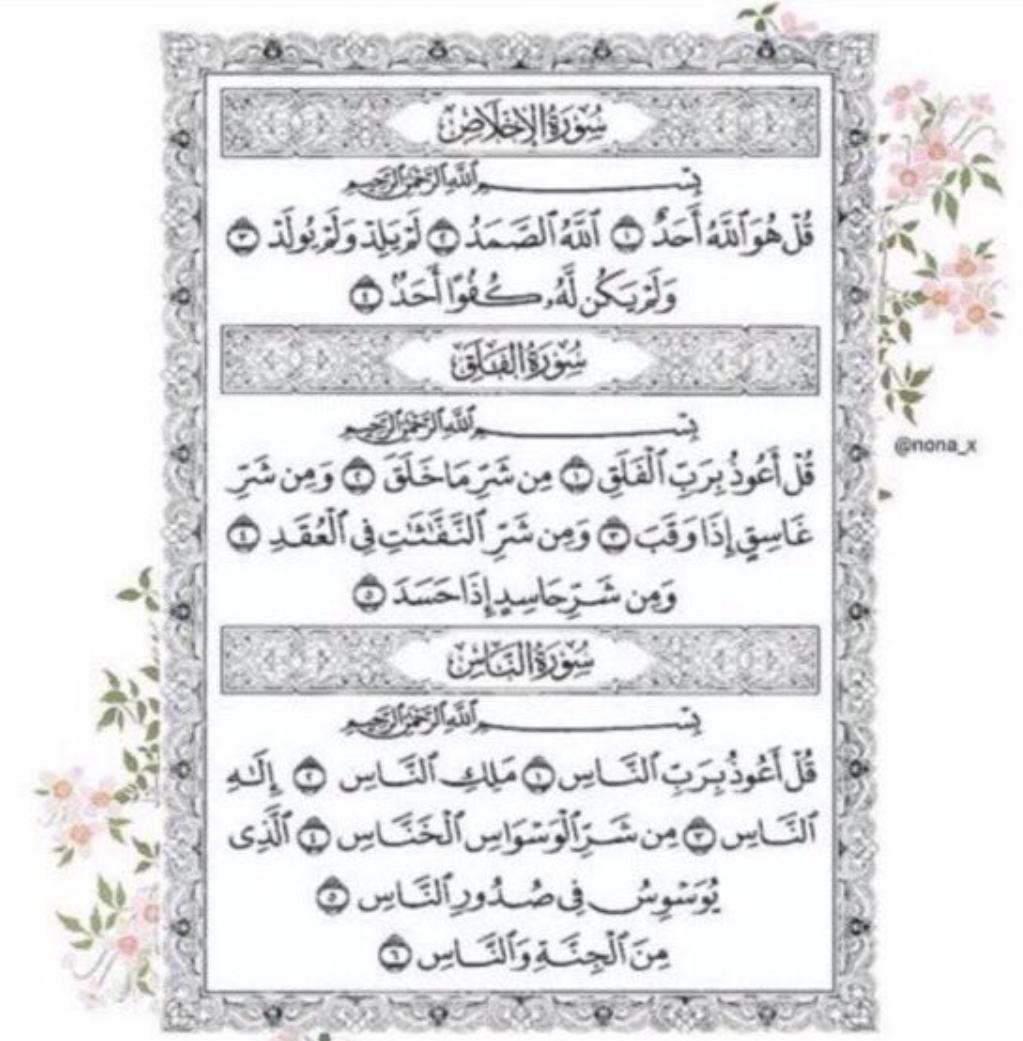 سُورَةُ الإِخْلَاصِ
بِسْمِ ٱللَّهِ ٱلرَّحْمَٰنِ ٱلرَّحِيمِ
قُلْ هُوَ ٱللَّهُ أَحَدٌ ١ ٱللَّهُ ٱلصَّمَدُ ٢ لَمْ يَلِدْ وَلَمْ يُولَدْ ٣
وَلَمْ يَكُن لَّهُۥ كُفُوًا أَحَدٌۢ ٤
سُورَةُ الفَلَقِ
بِسْمِ ٱللَّهِ ٱلرَّحْمَٰنِ ٱلرَّحِيمِ
@nona_x
قُلْ أَعُوذُ بِرَبِّ ٱلْفَلَقِ ١ مِن شَرِّ مَا خَلَقَ ٢ وَمِن شَرِّ
غَاسِقٍ إِذَا وَقَبَ ٣ وَمِن شَرِّ ٱلنَّفَّٰثَٰتِ فِى ٱلْعُقَدِ ٤
وَمِن شَرِّ حَاسِدٍ إِذَا حَسَدَ ٥
سُورَةُ النَّاسِ
بِسْمِ ٱللَّهِ ٱلرَّحْمَٰنِ ٱلرَّحِيمِ
قُلْ أَعُوذُ بِرَبِّ ٱلنَّاسِ ١ مَلِكِ ٱلنَّاسِ ٢ إِلَٰهِ
ٱلنَّاسِ ٣ مِن شَرِّ ٱلْوَسْوَاسِ ٱلْخَنَّاسِ ٤ ٱلَّذِى
يُوَسْوِسُ فِى صُدُورِ ٱلنَّاسِ ٥
مِنَ ٱلْجِنَّةِ وَٱلنَّاسِ ٦